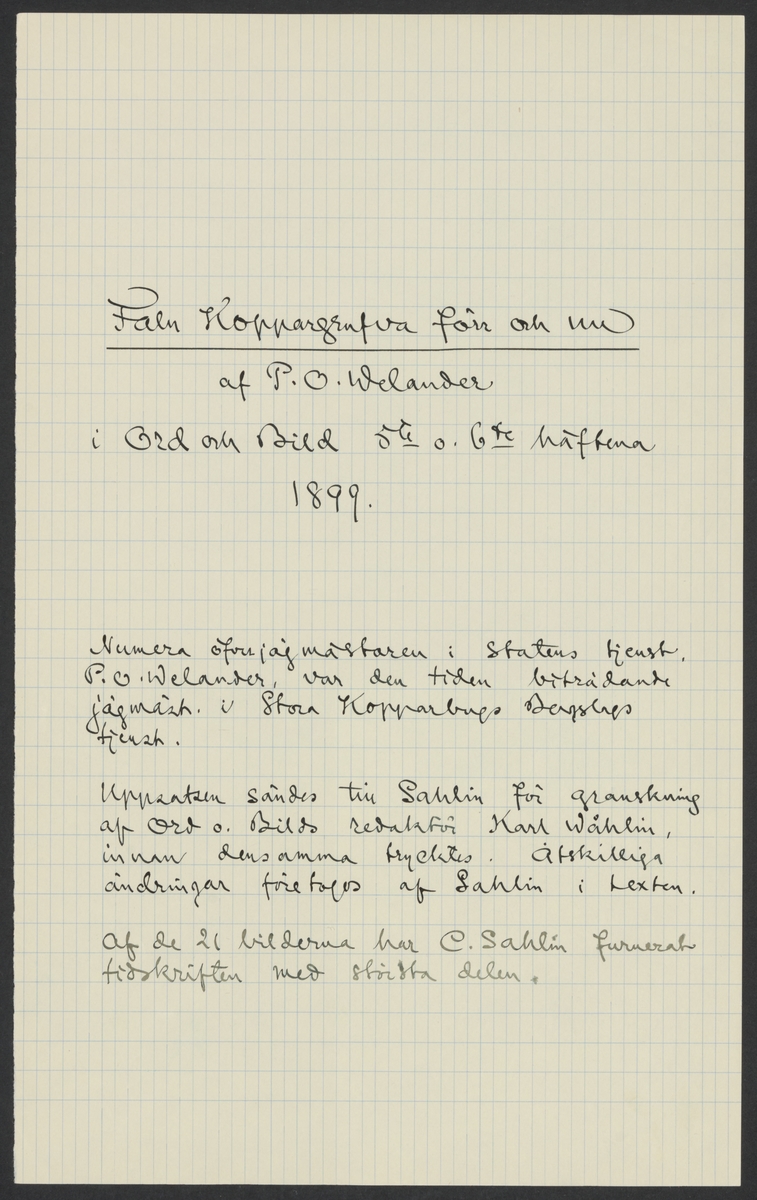 Falu Koppargrufva förr och nu
af P. O. Welander
i Ord och Bild 5te o. 6te häftena
1899.
Numera öfverjägmästaren i statens tjenst,
P. O. Welander, var den tiden biträdande
jägmäst. i Stora Kopparbergs Bergslags
tjenst.
Uppsatsen sändes till Sahlin för granskning
af Ord o. Bilds redaktör Karl Wåhlin,
innan densamma trycktes. Åtskilliga
ändringar företogos af Sahlin i texten.
Af de 21 bilderna har C. Sahlin furnerat
tidskriften med största delen.